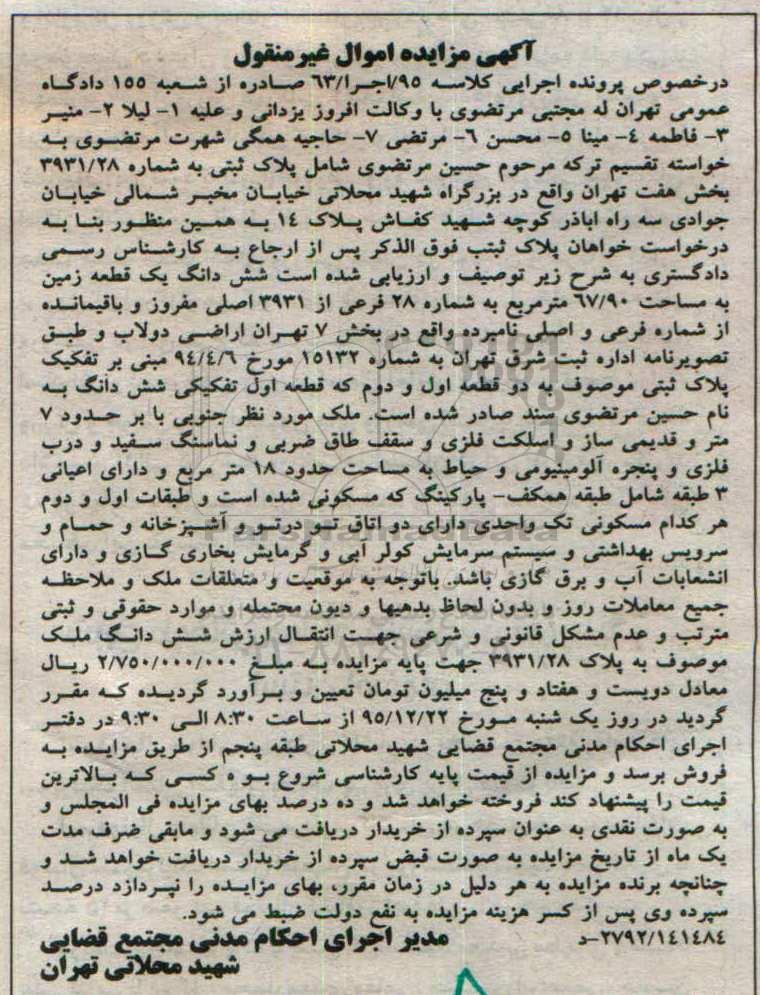 آگهی مزایده اموال غیرمنقول
درخصوص پرونده اجرایی کلاسه ۹۵/اجرا/۶۳ صادره از شعبه ۱۵۵ دادگاه
عمومی تهران له مجتبی مرتضوی با وکالت افروز یزدانی و علیه ۱- لیلا ۲- منیر
۳- فاطمه ٤- مینا ۵- محسن ٦- مرتضی ۷- حاجیه همگی شهرت مرتضوی به
خواسته تقسیم ترکه مرحوم حسین مرتضوی شامل پلاک ثبتی به شماره ۳۹۳۱/۲۸
بخش هفت تهران واقع در بزرگراه شهید محلاتی خیابان مخبر شمالی خیابان
جوادی سه راه اباذر کوچه شهید کفاش پلاک ۱٤ به همین منظور بنا به
درخواست خواهان پلاک ثبتب فوق الذکر پس از ارجاع به کارشناس رسمی
دادگستری به شرح زیر توصیف و ارزیابی شده است شش دانگ یک قطعه زمین
به مساحت ٦۷/۹۰ مترمربع به شماره ۲۸ فرعی از ۳۹۳۱ اصلی مفروز و باقیمانده
از شماره فرعی و اصلی نامبرده واقع در بخش ۷ تهران اراضی دولاب و طبق
تصویرنامه اداره ثبت شرق تهران به شماره ۱۵۱۳۲ مورخ ۹٤/٤/٦ مبنی بر تفکیک
پلاک ثبتی موصوف به دو قطعه اول و دوم که قطعه اول تفکیکی شش دانگ به
نام حسین مرتضوی سند صادر شده است. ملک مورد نظر جنوبی با بر حدود ۷
متر و قدیمی ساز و اسلکت فلزی و سقف طاق ضربی و نماسنگ سفید و درب
فلزی و پنجره آلومینیومی و حیاط به مساحت حدود ۱۸ متر مربع و دارای اعیانی
۳ طبقه شامل طبقه همکف- پارکینگ که مسکونی شده است و طبقات اول و دوم
هر کدام مسکونی تک واحدی دارای دو اتاق تو درتو و آشپزخانه و حمام و
سرویس بهداشتی و سیستم سرمایش کولر آبی و گرمایش بخاری گازی و دارای
انشعابات آب و برق گازی باشد. باتوجه به موقعیت و متعلقات ملک و ملاحظه
جمیع معاملات روز و بدون لحاظ بدهیها و دیون محتمله و موارد حقوقی و ثبتی
مترتب و عدم مشکل قانونی و شرعی جهت انتقال ارزش شش دانگ ملک
موصوف به پلاک ۳۹۳۱/۲۸ جهت پایه مزایده به مبلغ ۲/۷۵۰/۰۰۰/۰۰۰ ریال
معادل دویست و هفتاد و پنج میلیون تومان تعیین و برآورد گردیده که مقرر
گردید در روز یک شنبه مورخ ۹۵/۱۲/۲۲ از ساعت ۸:۳۰ الی ۹:۳۰ در دفتر
اجرای احکام مدنی مجتمع قضایی شهید محلاتی طبقه پنجم از طریق مزایده به
فروش برسد و مزایده از قیمت پایه کارشناسی شروع بو ه کسی که بالاترین
قیمت را پیشنهاد کند فروخته خواهد شد و ده درصد بهای مزایده فی المجلس و
به صورت نقدی به عنوان سپرده از خریدار دریافت می شود و مابقی ضرف مدت
یک ماه از تاریخ مزایده به صورت قبض سپرده از خریدار دریافت خواهد شد و
چنانچه برنده مزایده به هر دلیل در زمان مقرر، بهای مزایده را نپردازد درصد
سپرده وی پس از کسر هزینه مزایده به نفع دولت ضبط می شود.
۲۷۹۲/۱٤۱٤۸٤-د
مدیر اجرای احکام مدنی مجتمع قضایی
شهید محلاتی تهران
ParsNamadData